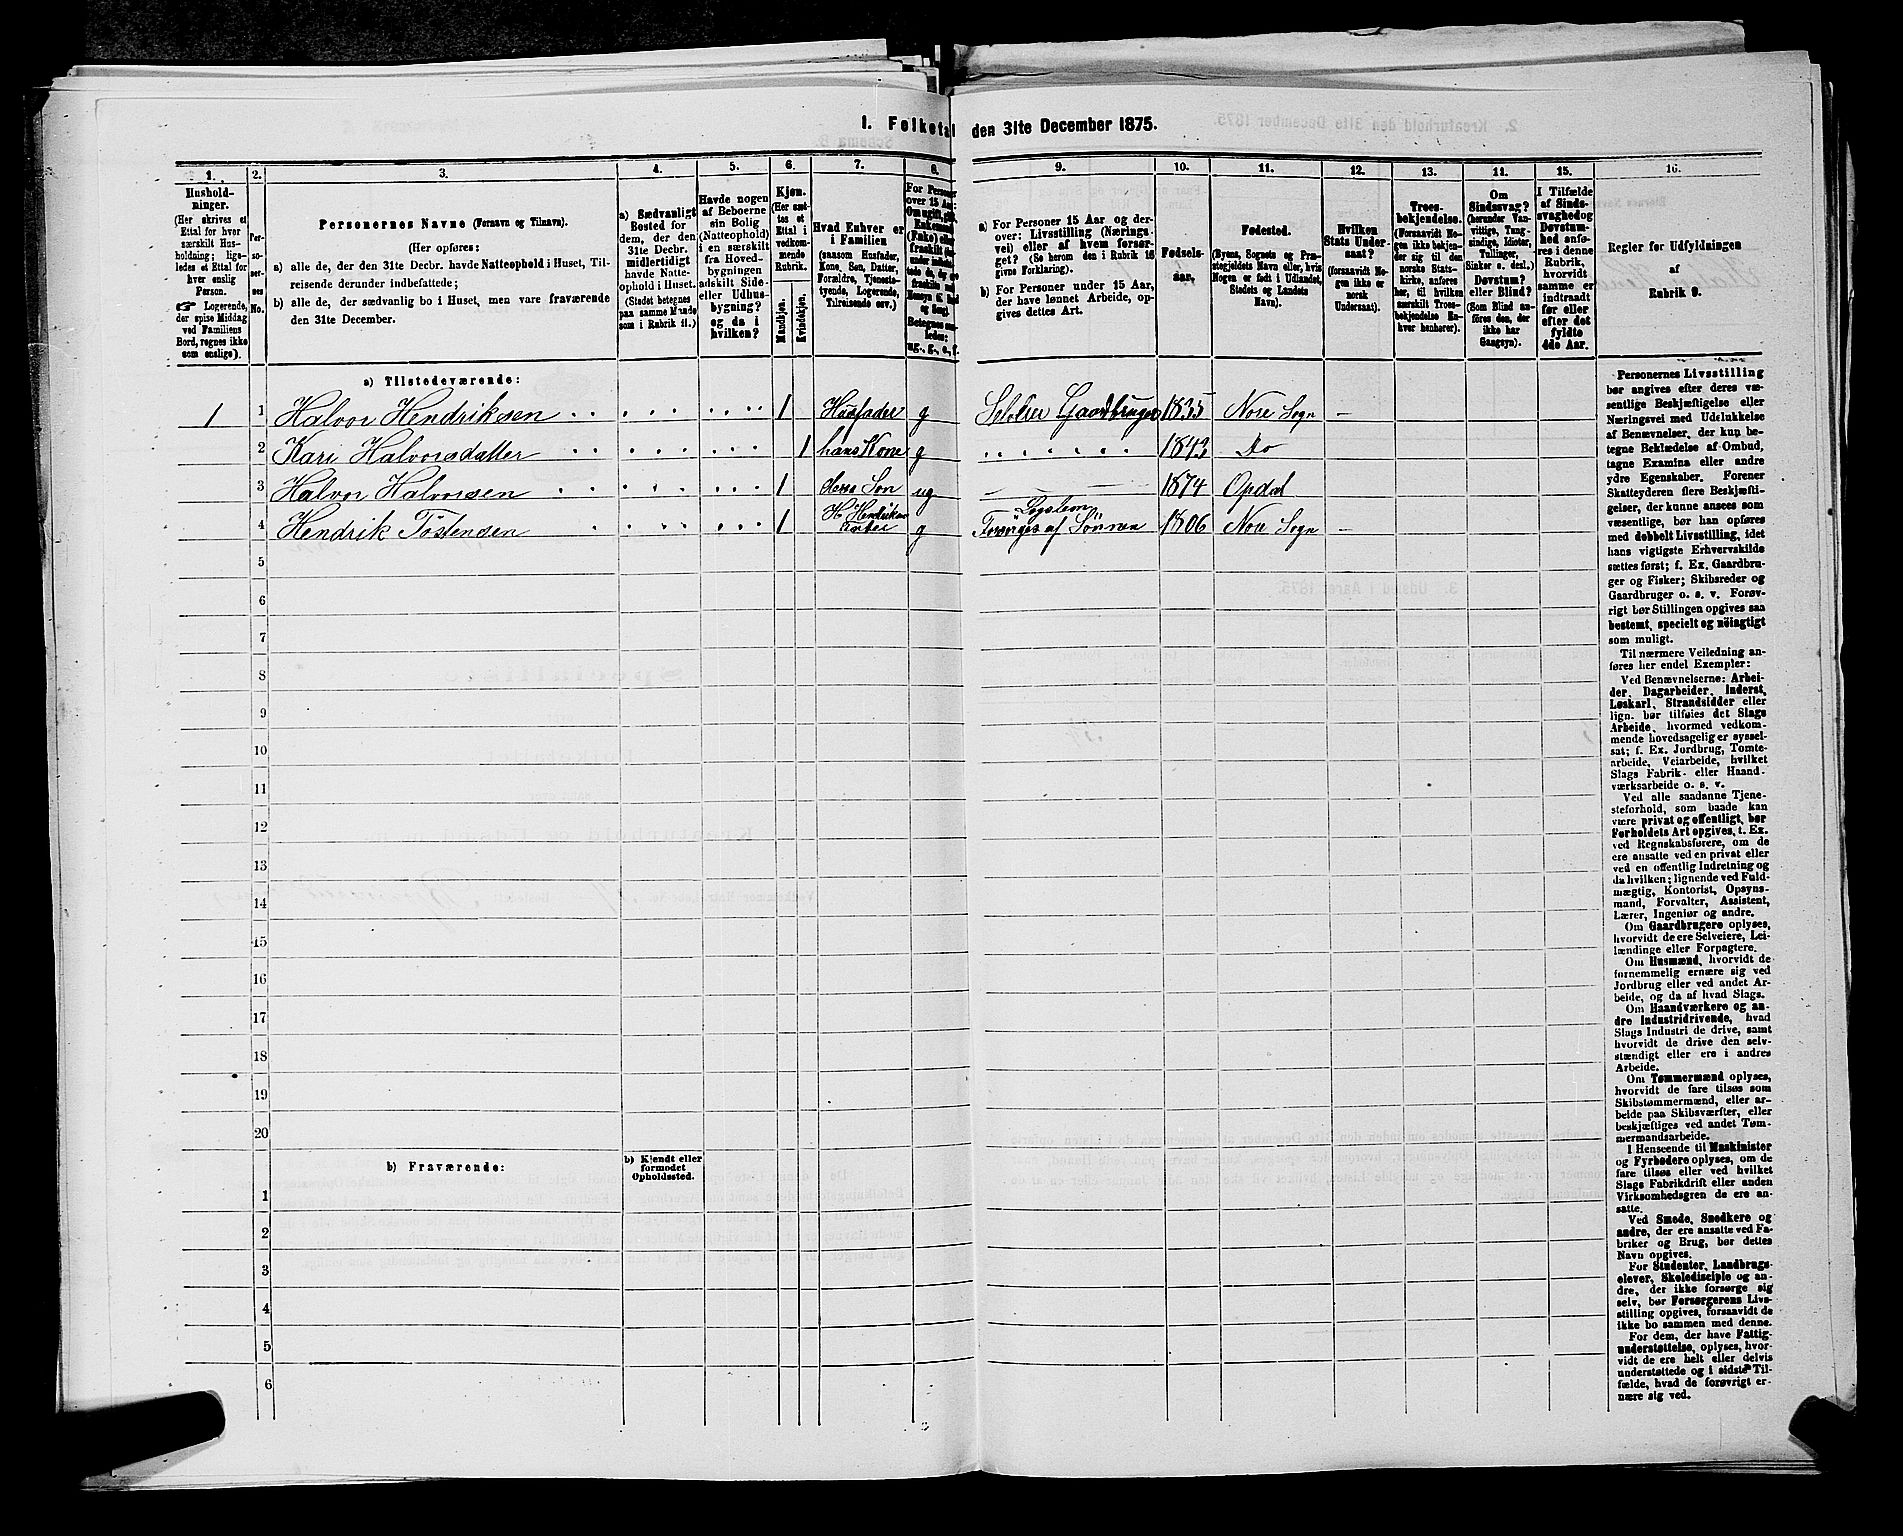 1. Folketal den 31te December 1875.
1.
Hushold-
ninger.
(Her skrives et
Ettal for hver
særskilt Hus-
holdning; lige-
ledes et Ettal for
hver enslig
Person.
☞ Logerende,
der spise Middag
ved Familiens
Bord, regnes ikke
som enslige).
2.
Per-
so-
ner-
nes
No.
3.
Personernes Navne (Fornavn og Tilnavn).
(Her opføres:
a) alle de, der den 31te Decbr. havde Natteophold i Huset, Til-
reisende derunder indbefattede;
b) alle de, der sædvanlig bo i Huset, men vare fraværende
den 31te December.
4.
a) Sædvanligt
Bosted for
dem, der den
31te Decbr.
midlertidigt
havde Natte-
ophold i Huset.
(Stedet betegnes
paa samme Maade
som i Rubrik 11.)
5.
Havde nogen
af Beboerne
sin Bolig
(Natteophold)
i en særskilt
fra Hoved-
bygningen
adskilt Side-
eller Udhus-
bygning?
og da i
hvilken?
6.
Kjøn.
(Her sæt-
tes et
Ettal i
vedkom-
mende
Rubrik.
Mandkjøn.
Kvindekjøn.
7.
Hvad Enhver er
i Familien
(saasom Husfader,
Kone, Søn, Datter,
Forældre, Tjeneste-
tyende, Logerende,
Tilreisende osv.)
8.
For Personer
over 15 Aar:
Om ugift, gift,
Enkemand
(Enke) eller
fraskilt
Betegnes saa-
ledes:
ug., g., e., f.
9.
a) For Personer 15 Aar og der-
over: Livsstilling (Nærings-
vei) eller af hvem forsør-
get? (Se herom den i Rubrik 16
givne Forklaring).
b) For Personer under 15 Aar,
der have lønnet Arbeide, op-
gives dettes Art.
10.
Fødsels-
aar.
11.
Fødested.
(Byens, Sognets og Præ-
stegjeldets Navn eller, hvis
Nogen er født i Udlandet,
Stedets og Landets
Navn).
12.
Hvilken
Stats Under-
saat?
(forsaavidt No-
gen ikke er
norsk
Undersaat).
13.
Troes-
bekjendelse.
(Forsaavidt No-
gen ikke bekjen-
der sig til den
norske Stats-
kirke, anføres
her, til hvilken
særskilt Troes-
bekjendelse En-
hver henhører).
14.
Om
Sindssvag?
(herunder Van-
vittige, Tung-
sindige, Idioter,
Tullinger,
Sinker o. desl.).
Døvstum?
eller Blind?
(Som Blind an-
føres den, der
ikke har
Gangsyn).
15.
I Tilfælde
af Sinds-
svaghed og
Døvstum-
hed anfø-
res i denne
Rubrik,
hvorvidt
samme er
indtraadt
før eller
efter det
fyldte
4de Aar.
16.
Regler for Udfyldningen
af
Rubrik 9.
a) Tilstedeværende:
1 1 Halvor Hendriksen 1 Husfader g Selveier Gaardbruger 1835 Nore Sogn —
2 Kari Halvorsdatter 1 hans Kone g 1842 Do
3 Halvor Halvorsen 1 deres Søn ug — — 1874 Opdal
4 Hendrik Tostensen 1 H Hendriksens Fader g Logslem Forsørges af Sønnen 1806 Nore Sogn —
5
6
7
8
9
10
11
12
13
14
15
16
17
18
19
20
b) Fraværende:
b) Kjendt eller
formodet
Opholdssted.
1
2
3
4
5
6
Personernes Livsstilling
bør angives efter deres væ-
sentlige Beskjæftigelse eller
Næringsvei med Udelukkelse
af Benævnelser, der kun be-
tegne Beklædelse af Ombud,
tagne Examina eller andre
ydre Egenskaber. Forener
Skatteyderen flere Beskjæfti-
gelser, der kunne ansees som
væsentlige, bør han opføres
med dobbelt Livsstilling, idet
hans vigtigste Erhvervskilde
sættes først; f. Ex. Gaardbru-
ger og Fisker; Skibsreder og
Gaardbruger o. s. v. Forøv-
rigt bør Stillingen opgives saa
bestemt, specielt og nøiagtigt
som muligt.
Til nærmere Veiledning an-
føres her endel Exempler:
Ved Benævnelserne: Arbei-
der, Dagarbeider, Inderst,
Løskarl, Strandsidder eller
lign. bør tilføies det Slags
Arbeide, hvormed vedkom-
mende hovedsagelig er syssel-
sat; f. Ex. Jordbrug, Tomte-
arbeide, Veiarbeide, hvilket
Slags Fabrik- eller Haand-
værksarbeide o. s. v.
Ved alle saadanne Tjene-
steforhold, som baade kan
være privat og offentligt, bør
Forholdets Art opgives, t. Ex.
ved Regnskabsførere, om de
ere ansatte ved en privat eller
ved en offentlig Indretning og
da hvilken; lignende ved Fuld-
mægtig, Kontorist, Opsyns-
mand, Forvalter, Assistent,
Lærer, Ingeniør og andre.
Om Gaardbrugere oplyses,
hvorvidt de ere Selveiere, Lei-
lændinge eller Forpagtere.
Om Husmænd, hvorvidt de
fornemmelig ernære sig ved
Jordbrug eller ved andet Ar-
beide, og da af hvad Slags.
Om Haandværkere og an-
dre Industridrivende, hvad
Slags Industri de drive, samt
hvorvidt de drive den selv-
stændigt eller ere i andres
Arbeide.
Om Tømmermænd oplyses,
hvorvidt de fare tilsøs som
Skibstømmermænd, eller ar-
beide paa Skibsværfter, eller
beskjæftiges ved andet Tøm-
mermandsarbeide.
I Henseende til Maskinister
og Fyrbødere oplyses, om de
fare tilsøs eller ved hvilket
Slags Fabrikdrift eller anden
Virksomhedsgren de ere an-
satte.
Ved Smede, Snedkere og
andre, der ere ansatte ved Fa-
briker og Brug, bør dettes
Navn opgives.
For Studenter, Landbrugs-
elever, Skoledisciple og an-
dre, der ikke forsørge sig
selv, bør Forsørgerens Livs-
stilling opgives, forsaavidt de
ikke bo sammen med denne.
For dem, der have Fattig-
understøttelse, oplyses, hvor-
vidt de ere helt eller delvis
understøttede og i sidste Til-
fælde, hvad de forøvrigt er-
nære sig ved.